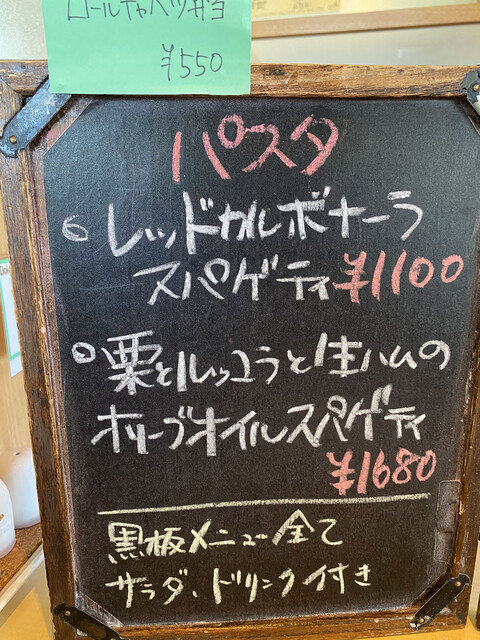 ロールキャベツ弁当
¥550
パスタ
レッドカルボナーラ
スパゲティ ¥1100
栗とルッコラと生ハムの
オリーブオイルスパゲティ
¥1680
黒板メニュー全て
サラダ、ドリンク付き